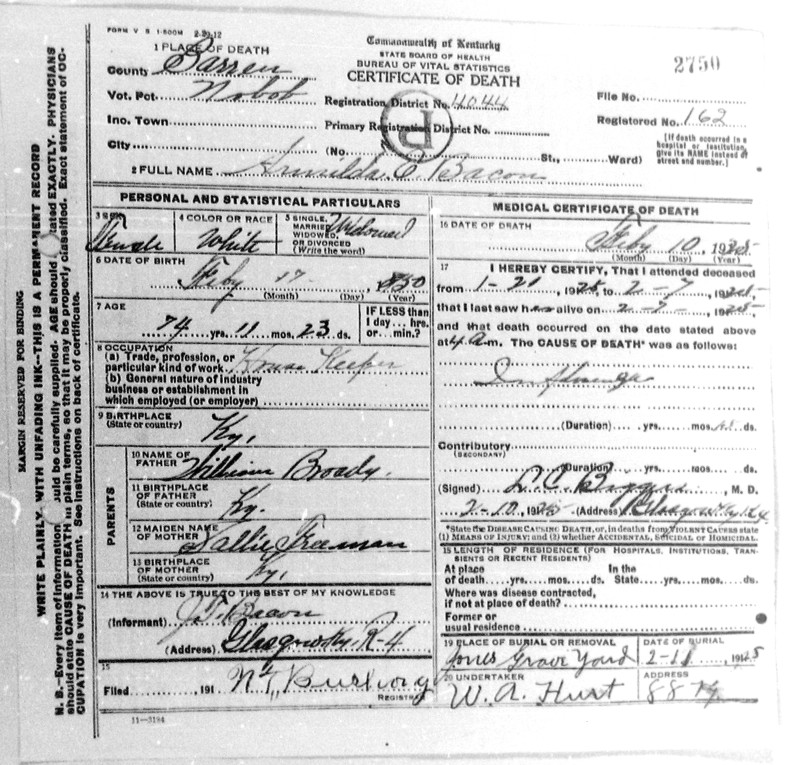 FORM V. S. 1-500M 2-20-12
1 PLACE OF DEATH
County Barren
Vot. Pct. Nobob
Inc. Town
City
Commonwealth of Kentucky
STATE BOARD OF HEALTH
BUREAU OF VITAL STATISTICS
CERTIFICATE OF DEATH
Registration District No. 4044
Primary Registration District No.
(No. St., Ward)
2750
File No.
Registered No. 162
[If death occurred in a
hospital or institution,
give its NAME instead of
street and number.]
2 FULL NAME C. Bacon
PERSONAL AND STATISTICAL PARTICULARS
3 SEX
Female
4 COLOR OR RACE
White
5 SINGLE,
MARRIED,
WIDOWED,
OR DIVORCED
(Write the word)
Widowed
6 DATE OF BIRTH
Feby 17 1850
(Month) (Day) (Year)
7 AGE
74 yrs. 11 mos. 23 ds.
IF LESS than
1 day... hrs.
or... min.?
8 OCCUPATION
(a) Trade, profession, or
particular kind of work House Keeper
(b) General nature of industry
business or establishment in
which employed (or employer)
9 BIRTHPLACE
(State or country)
Ky.
PARENTS
10 NAME OF
FATHER William Broady.
11 BIRTHPLACE
OF FATHER
(State or country) Ky.
12 MAIDEN NAME
OF MOTHER Sallie Freeman
13 BIRTHPLACE
OF MOTHER
(State or country) Ky.
14 THE ABOVE IS TRUE TO THE BEST OF MY KNOWLEDGE
(Informant) J. T. Bacon
(Address) Glasgow Ky, R-4
15
Filed 191
REGISTRAR
11-3184
MEDICAL CERTIFICATE OF DEATH
16 DATE OF DEATH
Feby 10 1925
(Month) (Day) (Year)
17
I HEREBY CERTIFY, That I attended deceased
from 1-20, 1925, to 2-7, 1925,
that I last saw her alive on 2-7, 1925,
and that death occurred on the date stated above
at 4 a m. The CAUSE OF DEATH* was as follows:
Influenza
(Duration) yrs. mos. ds.
Contributory
(SECONDARY)
(Duration) yrs. mos. ds.
(Signed) M. D.
2-10, 1925 (Address) Glasgow, Ky.
*State the DISEASE CAUSING DEATH, or, in deaths from VIOLENT CAUSES state
(1) MEANS OF INJURY; and (2) whether ACCIDENTAL, SUICIDAL or HOMICIDAL.
18 LENGTH OF RESIDENCE (FOR HOSPITALS, INSTITUTIONS, TRAN-
SIENTS OR RECENT RESIDENTS)
At place In the
of death yrs. mos. ds. State yrs. mos. ds.
Where was disease contracted,
if not at place of death?
Former or
usual residence
19 PLACE OF BURIAL OR REMOVAL
Jones Grave Yard
DATE OF BURIAL
2-11, 1925
20 UNDERTAKER
W. A. Hurt
ADDRESS
MARGIN RESERVED FOR BINDING
WRITE PLAINLY, WITH UNFADING INK--THIS IS A PERMANENT RECORD
N. B.--Every item of information should be carefully supplied. AGE should be stated EXACTLY. PHYSICIANS
should state CAUSE OF DEATH in plain terms, so that it may be properly classified. Exact statement of OC-
CUPATION is very important. See instructions on back of certificate.